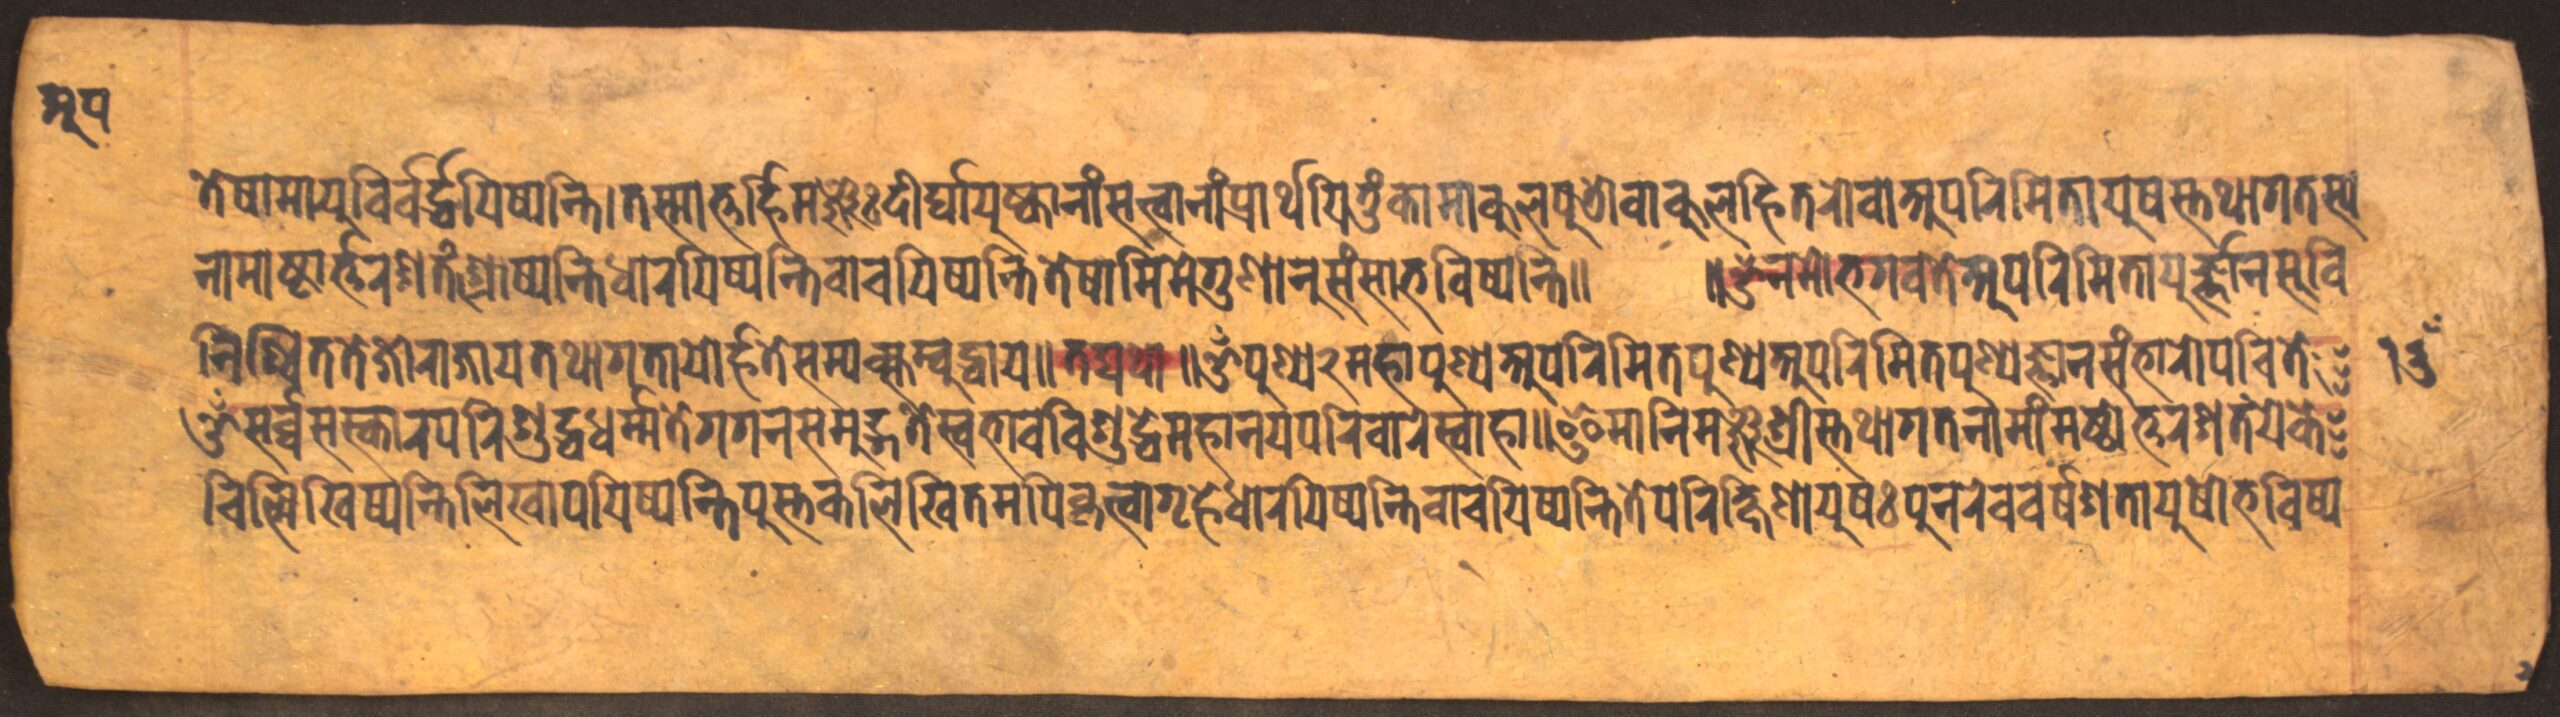 अप
तेषामायुविर्वर्द्धयिष्यन्ति। तस्मात्तर्हिमञ्जुः दीर्घायुष्कानांसत्त्वानांप्रार्थयितुंकामाकुलपुत्रोवाकुलदुहितरोवाअपरिमितायुषस्तथागतस्य
नामाष्टार्त्तरशतंश्रोष्यन्तिधारयिष्यन्तिवाचयिष्यन्तितेषामिमेगुणानुसंसाभविष्यन्ति॥ ॥ॐनमोभगवतेअपरिमितायुर्ज्ञानसुवि
निश्चिततेजोराजायतथागतायोर्हतेसम्यक्सम्बुद्धाय॥ तद्यथा॥ ॐपुण्य२महापुण्यअपरिमितपुण्यअपरिमितपुण्यज्ञानसंभारोपचिते
ॐसर्व्वसस्कारपरिशुद्धधर्म्मतेगगनसमुद्गतेस्वभावविशुद्धेमहानयपरिवारेस्वाहा॥ ॐमानिमञ्जुश्रीस्तथागतनामांमष्टोत्तरशतंयेके
चिल्लिखिष्यन्तिलिखापयिष्यन्तिपुस्तकलिखितमपिकृत्वागृहेधारयिष्यन्तिवाचयिष्यन्तितेपरिक्षिणायुषः पुनरेववर्षशतायुषोभविष्य